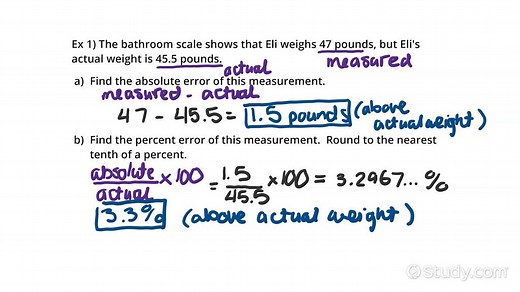 Ex 1) The bathroom scale shows that Eli weighs 47 pounds, but Eli's
actual weight is 45.5 pounds.
actual
measured
a) Find the absolute error of this measurement.
measured - actual
47 - 45.5 = 1.5 pounds (above
actual weight)
b) Find the percent error of this measurement. Round to the nearest
tenth of a percent.
absolute
actual
x 100
= 1.5
45.5
x 100 = 3.2967... %
3.3% (above actual weight)
Study.com